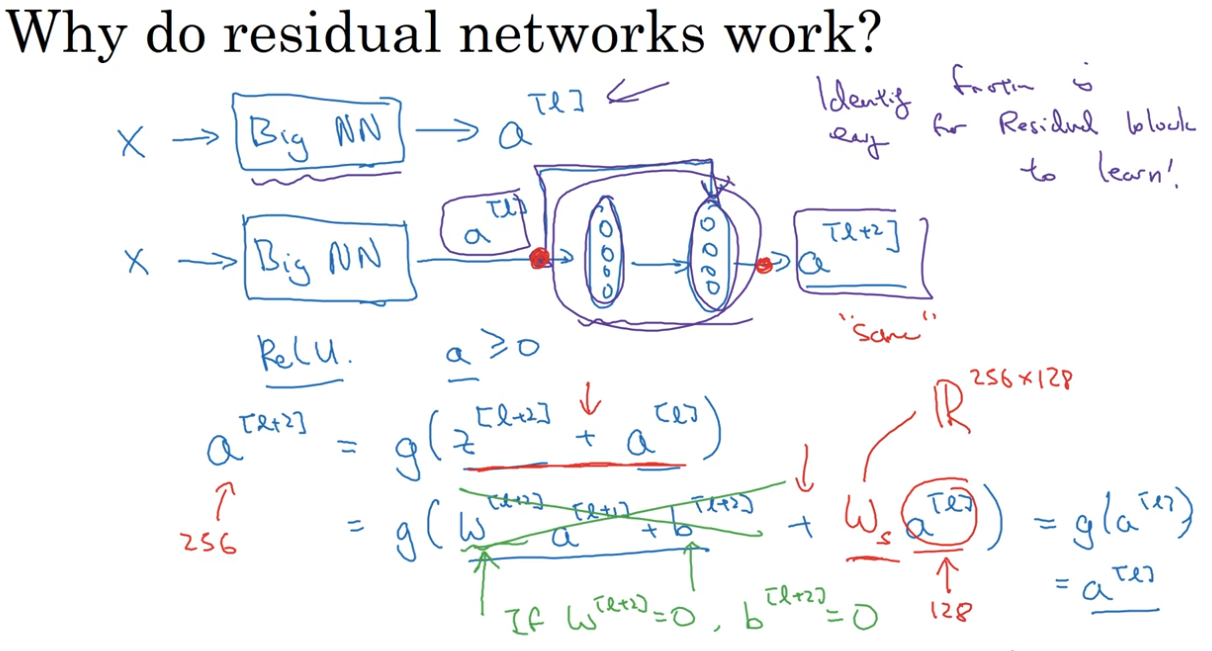 Why do residual networks work?
X → Big NN → a^[l] ←
Identity function is
easy for Residual block
to learn!
X → Big NN → a^[l] → a^[l+2]
"same"
ReLU. a ≥ 0
a^[l+2] = g(z^[l+2] + a^[l])
256
= g(W^[l+2] a^[l+1] + b^[l+2] + W_s a^[l]) = g(a^[l])
= a^[l]
ℝ^256×128
128
If W^[l+2]=0, b^[l+2]=0